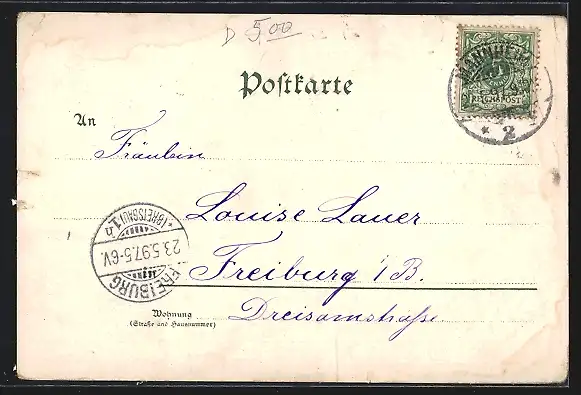 D 5.00
Postkarte
MANNHEIM
5
REICHSPOST
* 2
An
Fräulein
Louise Lauer
Freiburg i/B.
Dreisamstraße
*(BREISGAU)1n
23.5.97.5-6V.
FREIBURG
Wohnung
(Straße und Hausnummer)